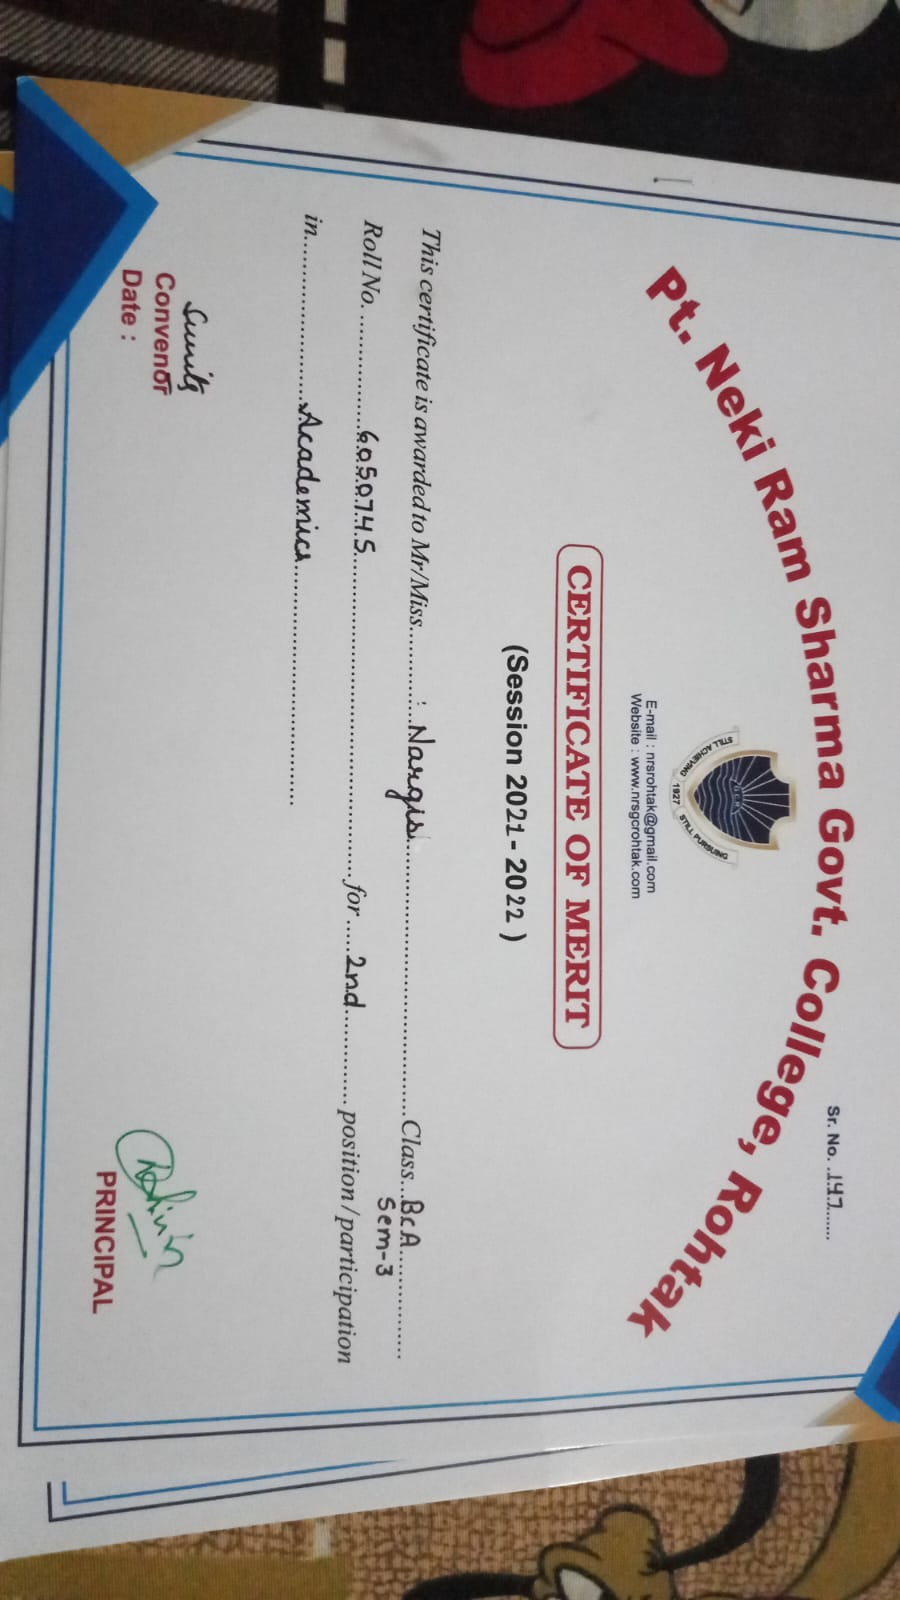 Sr. No. ..147......
Pt. Neki Ram Sharma Govt. College, Rohtak
STILL ACHIEVING 1927 STILL PURSUING
E-mail : nrsrohtak@gmail.com
Website : www.nrsgcrohtak.com
CERTIFICATE OF MERIT
(Session 2021 - 2022 )
This certificate is awarded to Mr/Miss............: Nargis............................................Class...BCA..............
Sem-3
Roll No. ................6050745..................................................for .....2nd........... position / participation
in........................Academics.....................................
Sunita
Convenor
Date :
PRINCIPAL